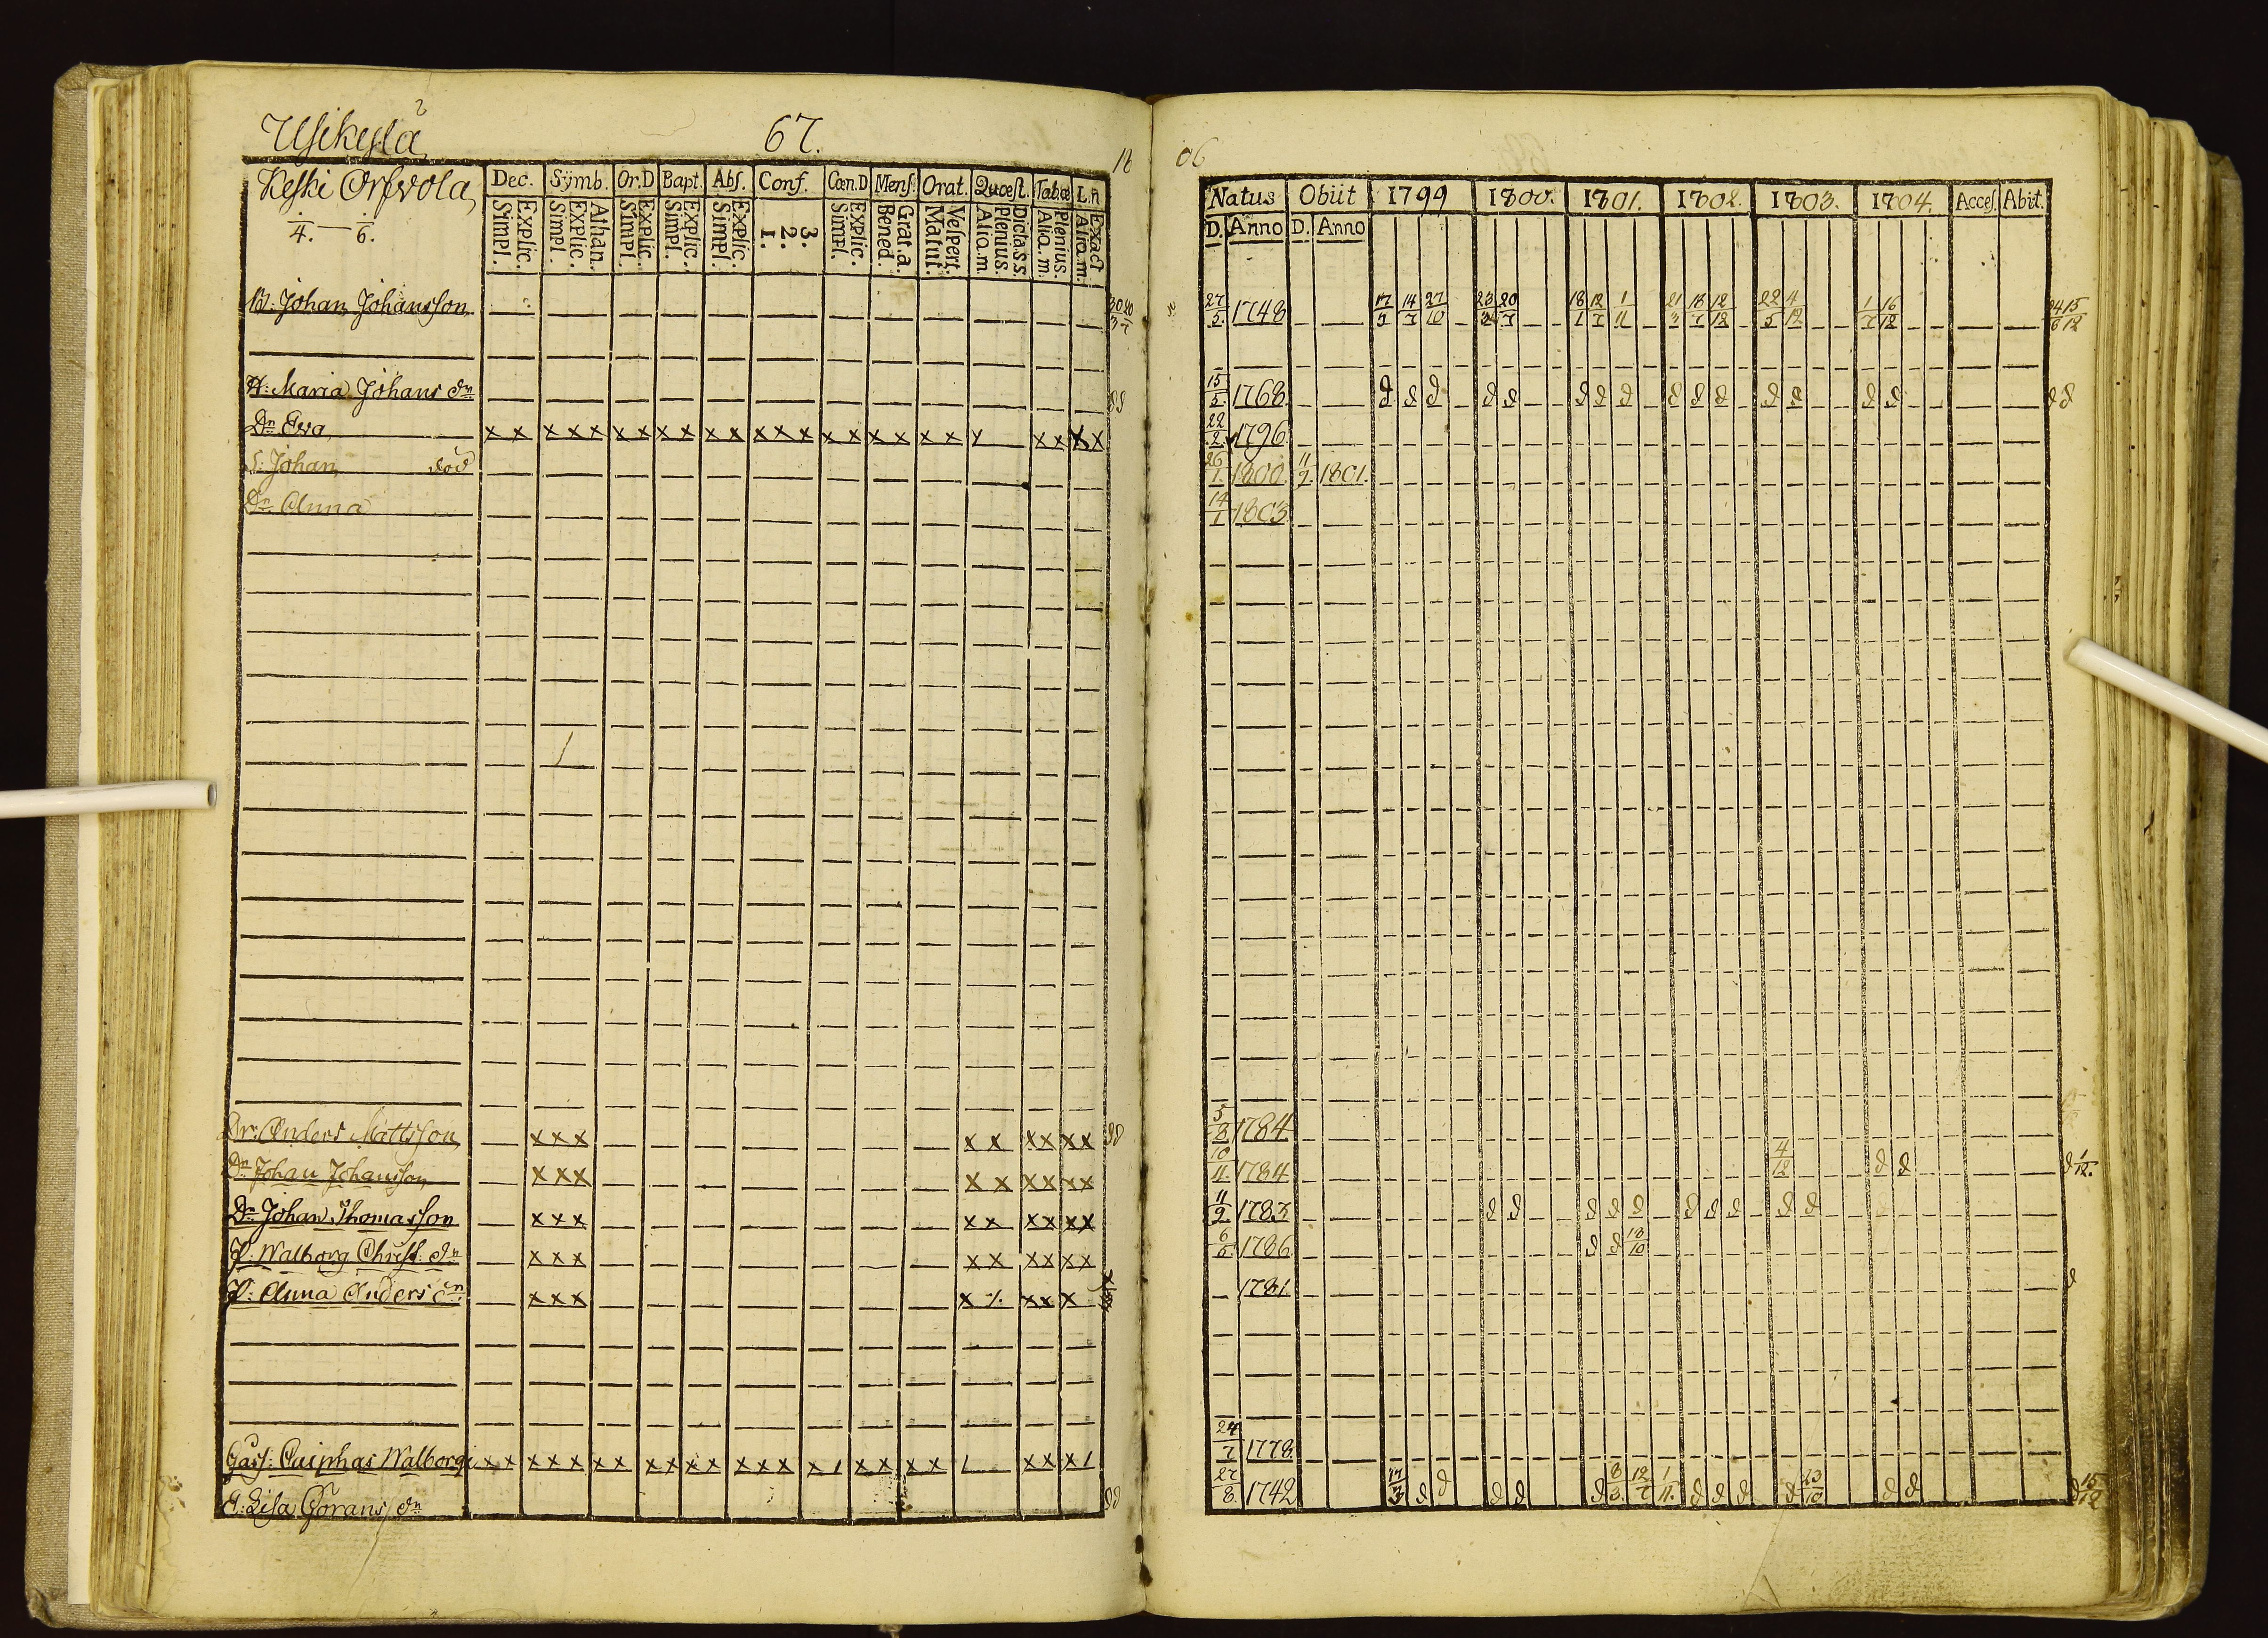 67.
Keski Orfvola
4. — 6.
Dec. Symb. Or.D Bapt. Abs. Conf. Cœn.D Mens. Orat. Quœst. Tabœ L.n
Simpl. Explic. Simpl. Explic. Athan. Simpl. Explic. Simpl. Explic. Simpl. Explic. 1. 2. 3. Simpl. Explic. Bened. Grat.a. Matut. Vespert. Alia.m. Plenius. Dicta.s.s. Alia.m. Plenius. Alia.m. Exact
B: Johan Johansson
H: Maria Johans dn
Dn Eva x x x x x x x x x x x x x x x x x x x x x x x x x x
S: Johan död
Dn Anna
Dr: Anders Mattsson x x x x x x x x x
Dn Johan Johansson x x x x x x x x x
Dn Johan Thomasson x x x x x x x x x
P: Walborg Christ: dn x x x x x x x x x
P: Anna Anders dn x x x x x x x
Caiphas Walborg
E: Lisa Görans dn
06
Natus Obiit 1799 1800. 1801. 1802. 1803. 1804. Acces. Abit.
D. Anno D. Anno
27/5. 1748 17/3 14/7 27/10 20/7 18/1 12/7 1/11 21/3 18/7 12/12 22/5 4/12 1/7 16/12
15/5. 1768 d d d d d d d d d d d d d d d
22/2. 1796
26/1. 1800. 11/9. 1801.
14/1 1803
5/8 1784
10/11. 1784 4/12 d d
11/9. 1783 d d d d d d d d d d
6/5. 1786 d d 18/10
1781
24/7 1778
27/8. 1742 17/3 d d d d d 8/3. 12/7 1/11. d d d d 13/10 d d d 15/12